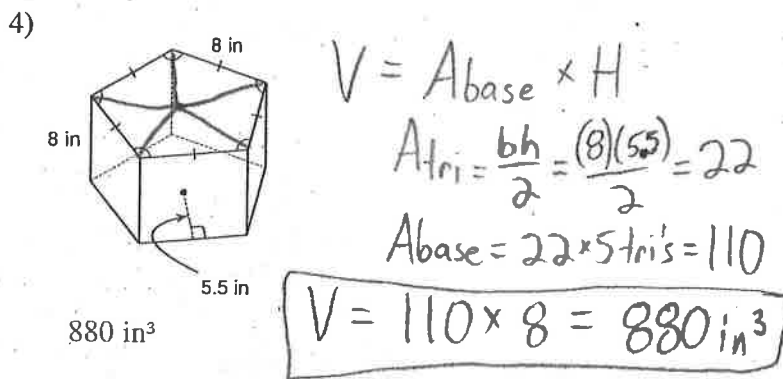 4)
8 in
8 in
5.5 in
880 in³
V = Abase × H
Atri = bh/2 = (8)(5.5)/2 = 22
Abase = 22 × 5 tri's = 110
V = 110 × 8 = 880 in³